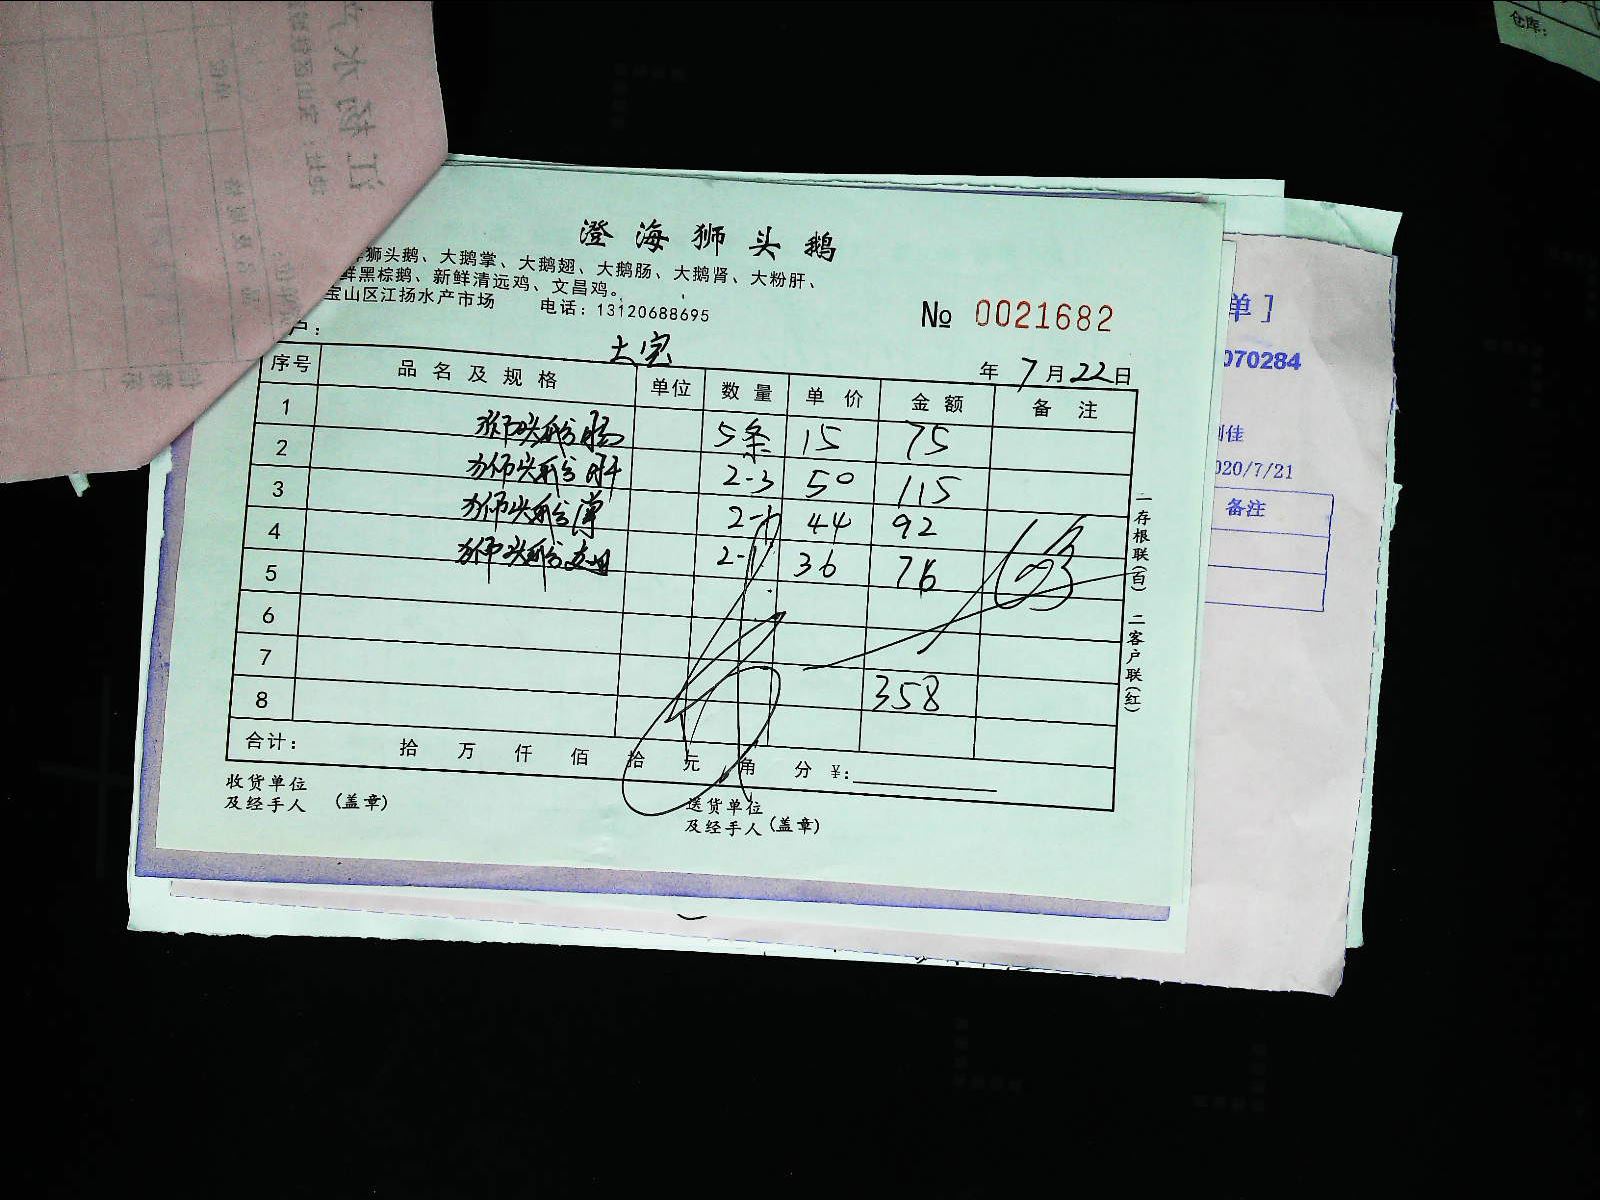 澄海狮头鹅
狮头鹅、大鹅掌、大鹅翅、大鹅肠、大鹅肾、大粉肝、
鲜黑棕鹅、新鲜清远鸡、文昌鸡。
宝山区江扬水产市场 电话：13120688695
№ 0021682
户：
大宝
年 7月22日
序号 品名及规格 单位 数量 单价 金额 备注
1 狮头鹅肠 5条 15 75
2 狮头鹅肝 2-3 50 115
3 狮头鹅 2-1 44 92
4 狮头鹅翅 2-1 36 76
5
6
7
8 358
合计： 拾 万 仟 佰 拾 元 角 分 ¥:
收货单位
及经手人 (盖章)
送货单位
及经手人 (盖章)
一存根联(白) 二客户联(红)
单]
070284
佳
020/7/21
备注
仓库: